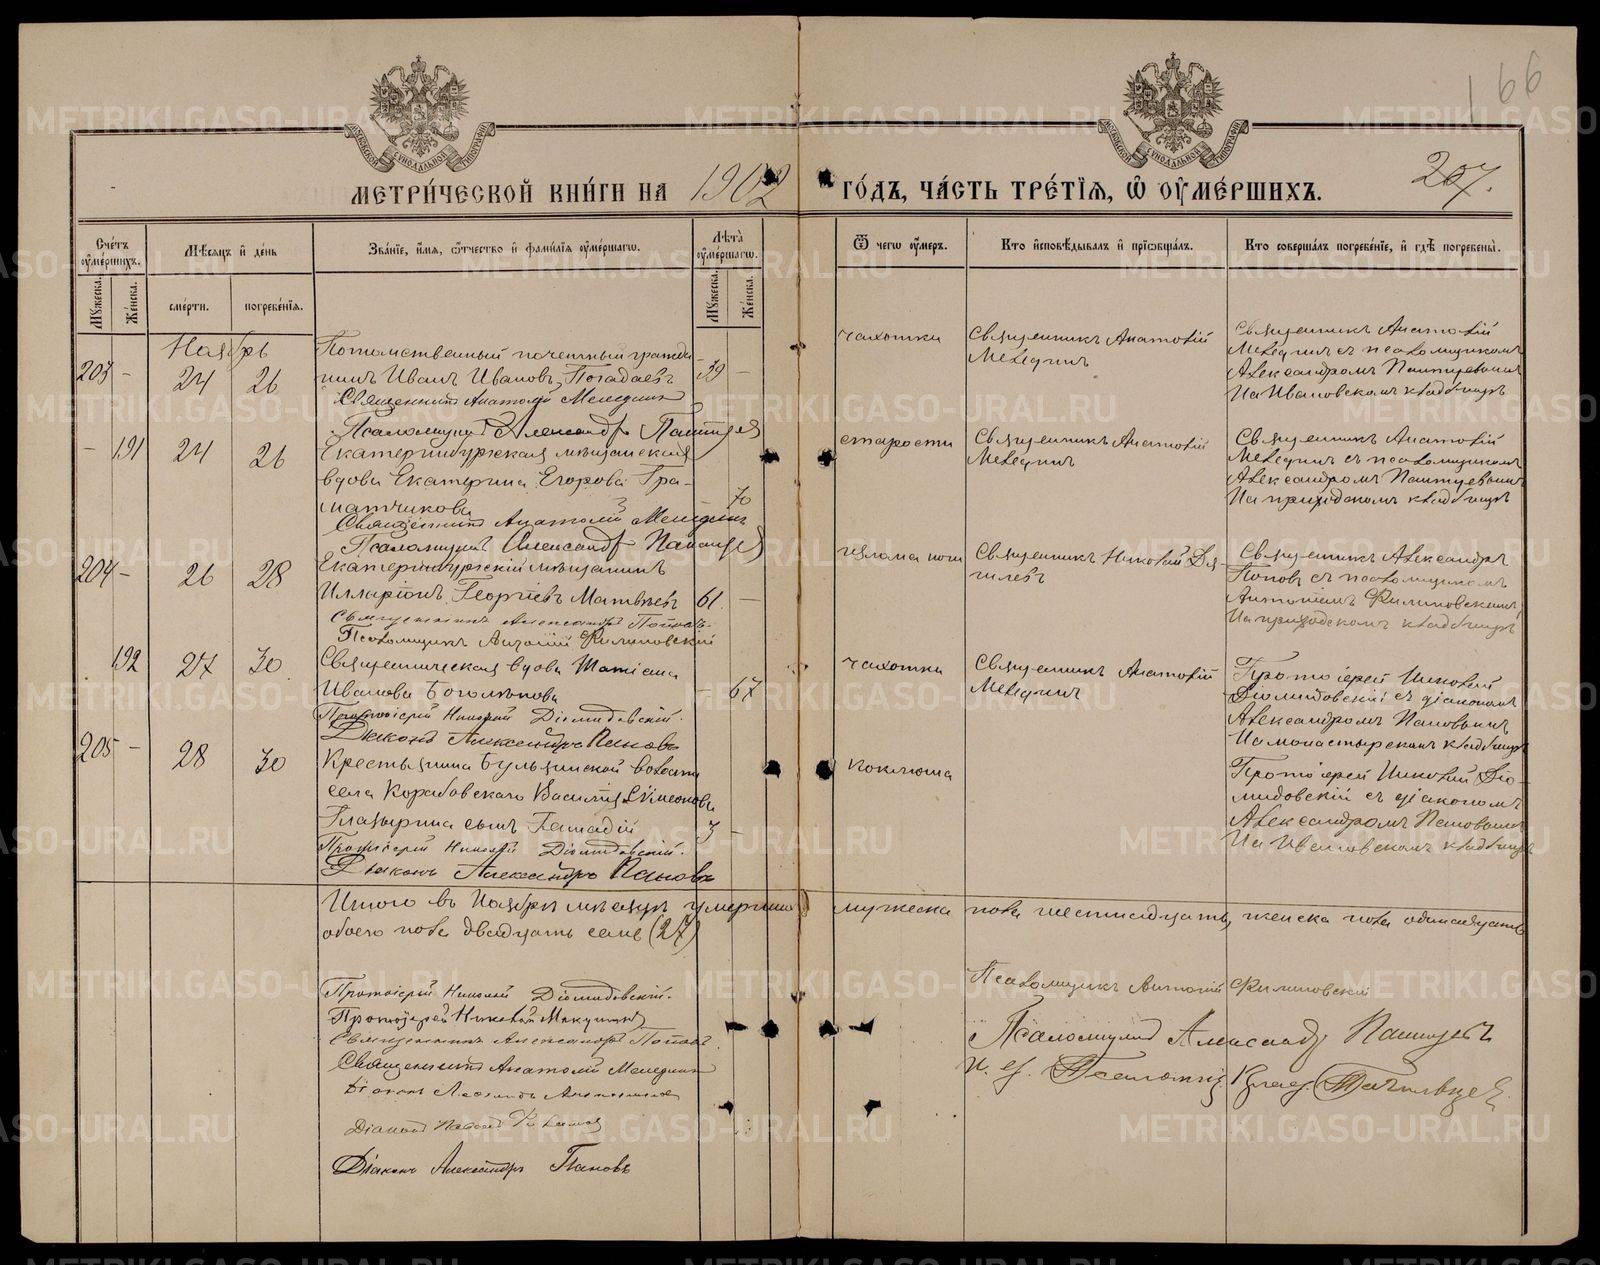 166
МЕТРИ́ЧЕСКОЙ КНИ́ГИ НА 1902 ГО́ДЪ, ЧА́СТЬ ТРЕ́ТЇѦ, Ѡ ОУМЕ́РШИХЪ.
207.
Сче́тъ оуме́ршихъ.
Мѣ́сяцъ и де́нь
Зва́нїе, и́мя, ѻ́тчество и фами́лїя оуме́ршагѡ.
Лѣта̀ оуме́ршагѡ.
Ѿ чегѡ̀ оу́меръ.
Кто̀ исповѣ́дывалъ и прїѡбща́лъ.
Кто̀ соверша́лъ погребе́нїе, и гдѣ̀ погребены̀.
Му́жеска.
Же́нска.
сме́рти.
погребе́нїя.
Му́жеска.
Же́нска.
Ноябрь
203 – 24 26
Потомственный почетный гражда-
нинъ Иванъ Ивановъ Погадаевъ 39 –
Священникъ Анатолій Мелединъ
Псаломщикъ Александр
чахотки
Священникъ Анатолій
Мелединъ
Священникъ Анатолій
Мелединъ съ псаломщикомъ
Александромъ
На Ивановскомъ кладбищѣ
– 191 24 26
Екатеринбургская мѣщанская
вдова Екатерина Егорова Гра-
матчикова – 70
Священникъ Анатолій Мелединъ
Псаломщикъ Александр
старости
Священникъ Анатолій
Мелединъ
Священникъ Анатолій
Мелединъ съ псаломщикомъ
Александромъ
На приходскомъ кладбищѣ
204 – 26 28
Екатеринбургскій мѣщанинъ
Илларіонъ Георгіевъ Матвѣевъ 61 –
Священникъ Александръ Поповъ
Псаломщикъ Антоній Филиповскій
излома ноги
Священникъ Николай
Священникъ Александръ
Поповъ съ псаломщикомъ
Антоніемъ Филиповскимъ
На приходскомъ кладбищѣ
192 27 30
Священническая вдова Татіана
Иванова Боголѣпова – 67
Протоіерей Николай Діомидовскій.
Діаконъ Александръ Пановъ
чахотки
Священникъ Анатолій
Мелединъ
Протоіерей Николай
Діомидовскій съ діакономъ
Александромъ Пановымъ
На монастырскомъ кладбищѣ
205 – 28 30
Крестьянина Бульзинской волости
села Корабовскаго Василія Симеонова
Глазырина сынъ Генадій 3 –
Протоіерей Николай Діомидовскій.
Діаконъ Александръ Пановъ
коклюша
Протоіерей Николай Діо-
мидовскій съ діакономъ
Александромъ Пановымъ
На Ивановскомъ кладбищѣ
Итого въ Ноябрѣ мѣсяцѣ умерших мужеска пола шестнадцать, женска пола одинадцать
обоего пола двадцать семь (27)
Протоіерей Николай Діомидовскій.
Протоіерей Николай
Священникъ Александръ Поповъ
Священникъ Анатолій Мелединъ
Діаконъ
Діаконъ
Діаконъ Александръ Пановъ
Псаломщикъ Антоній Филиповскій
Псаломщикъ Александр
И. д. Псаломщ. Влад.